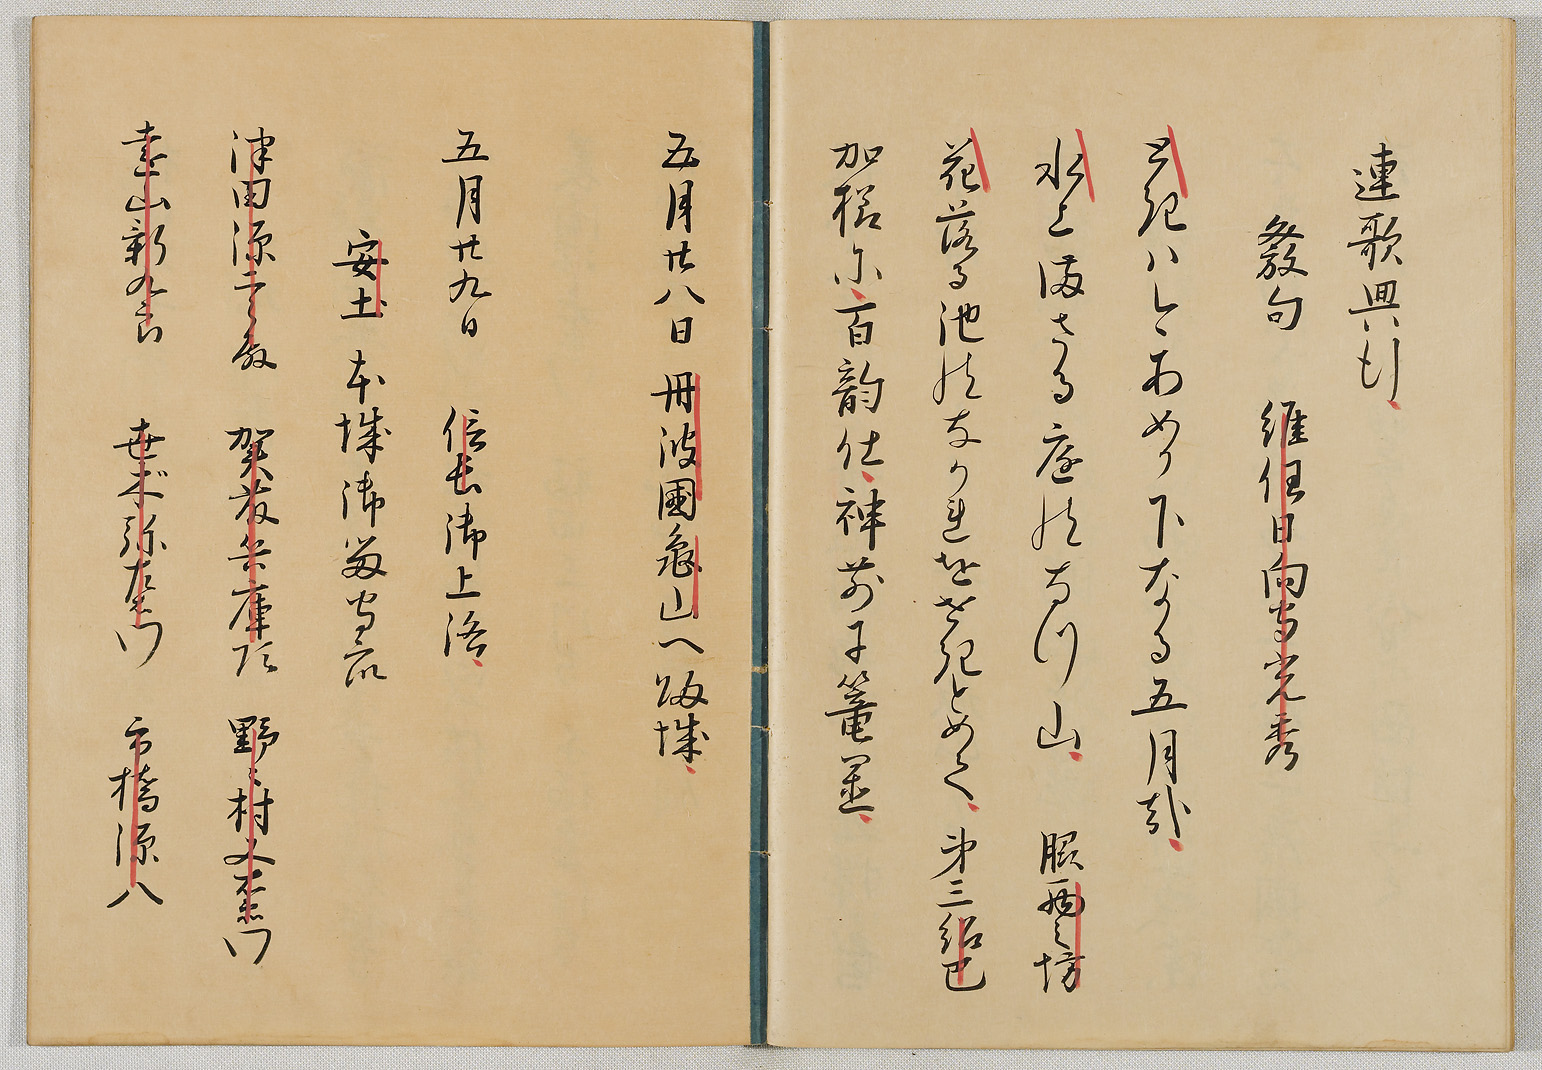 連歌興行、
発句　維任日向守光秀
とき八今あめか下なる五月哉、
水上満さる庭のなつ山、　脇西之坊
花落る池の流をせきとめて、　第三紹巴
加様に、百韵仕、神前に籠置、
五月廿八日丹波國亀山へ皈城、
五月廿九日　信長御上洛、
安土本城御留守衆
津田源十郎殿　賀茂兵庫頭　野々村又右衛門
遠山新九郎　世木弥左衛門　市橋源八